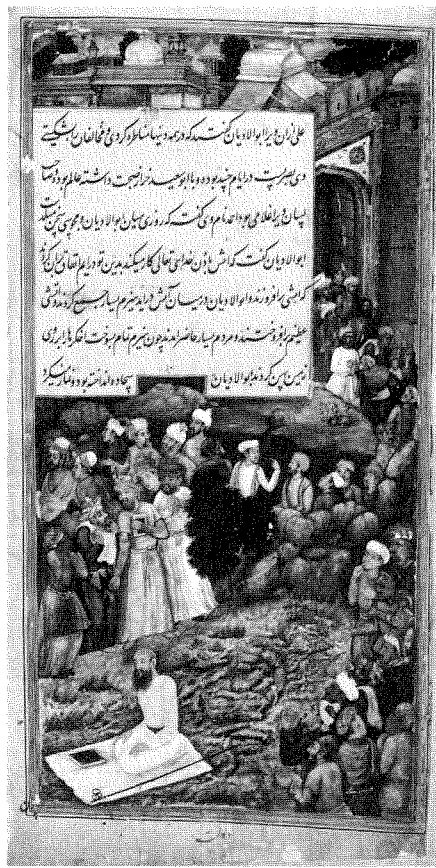 علی زان ویرا ابوالادیان گفتند که در همه دینها مناظره کردی و مخالفان را بشکستی
وی بصریست در ایام جنید بوده و با ابوسعید خراز صحبت داشته عالم بوده و صاحب
لسان ویرا غلامی بود احمد نام وی گفت که روزی میان ابوالادیان و مجوسی سخن میگذشت
ابوالادیان گفت که آتش باذن خدای تعالی کار میکند بدین تو در
که آتشی برافروزند و ابوالادیان در میان آتش درآید هیزم بسیار جمع کردند و آتشی
عظیم برافروختند و مردم بسیار حاضر آمدند چون هیزم تمام بسوخت اخگرها را بر روی
زمین پهن کردند ابوالادیان سجاده انداخته بود و نماز میکرد